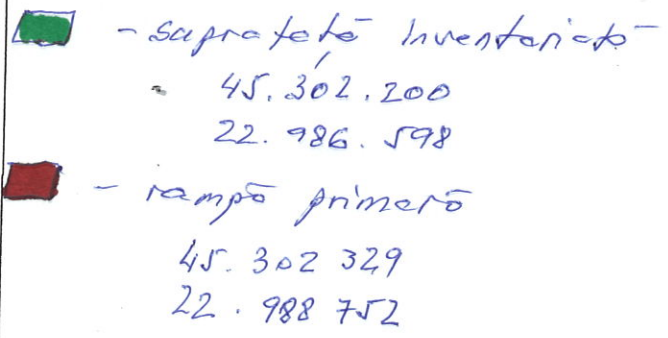 - suprafață inventariată
45.302.200
22.986.598
- rampă primară
45.302 329
22.988 752